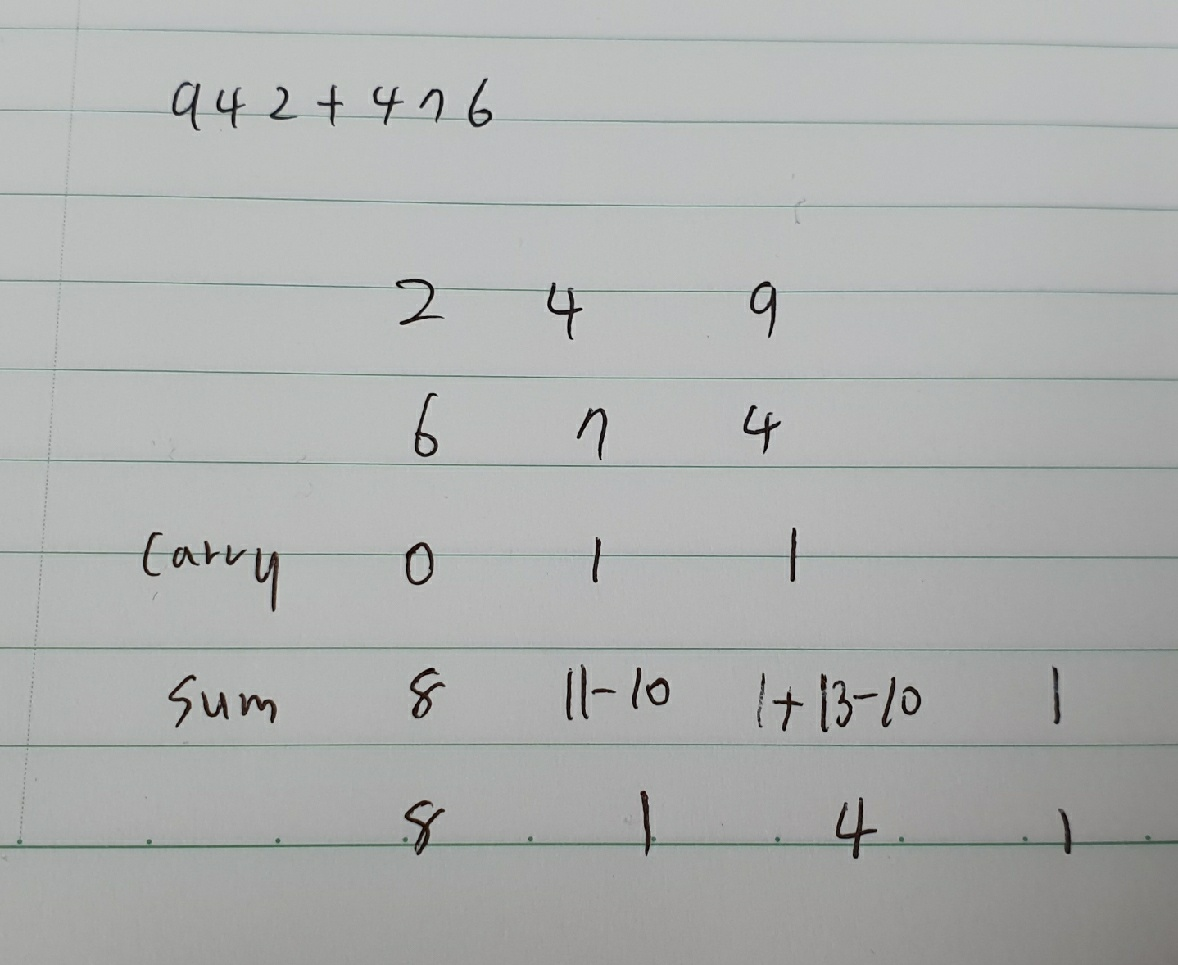 942+476
2 4 9
6 7 4
Carry 0 1 1
Sum 8 11-10 1+13-10 1
8 1 4 1